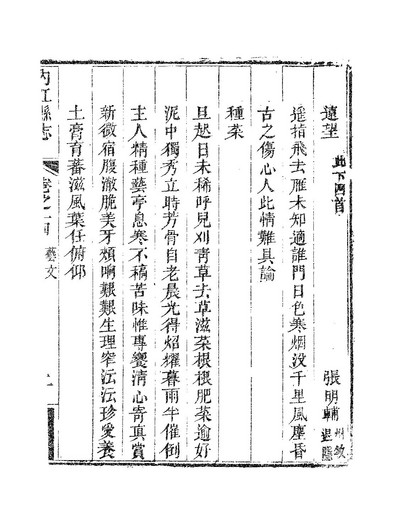 遠望 此下四首
張明輔 州敘
遥指飛去雁未知適誰門日色寒煙没千里風塵昏
古之傷心人此情難具論
種菜
旦起日未稀呼兒刈青草去草滋菜根根肥菜逾好
泥中獨秀立時芳骨自老晨光得炤耀暮雨半催倒
主人精種藝亭息寒不稿苦味惟專饗清心寄真賞
新薇宿腹澈脆美牙頰响艱艱生理窄沄沄珍愛養
土膏育蕃滋風葉任俯仰
內江縣志 卷之十四 藝文